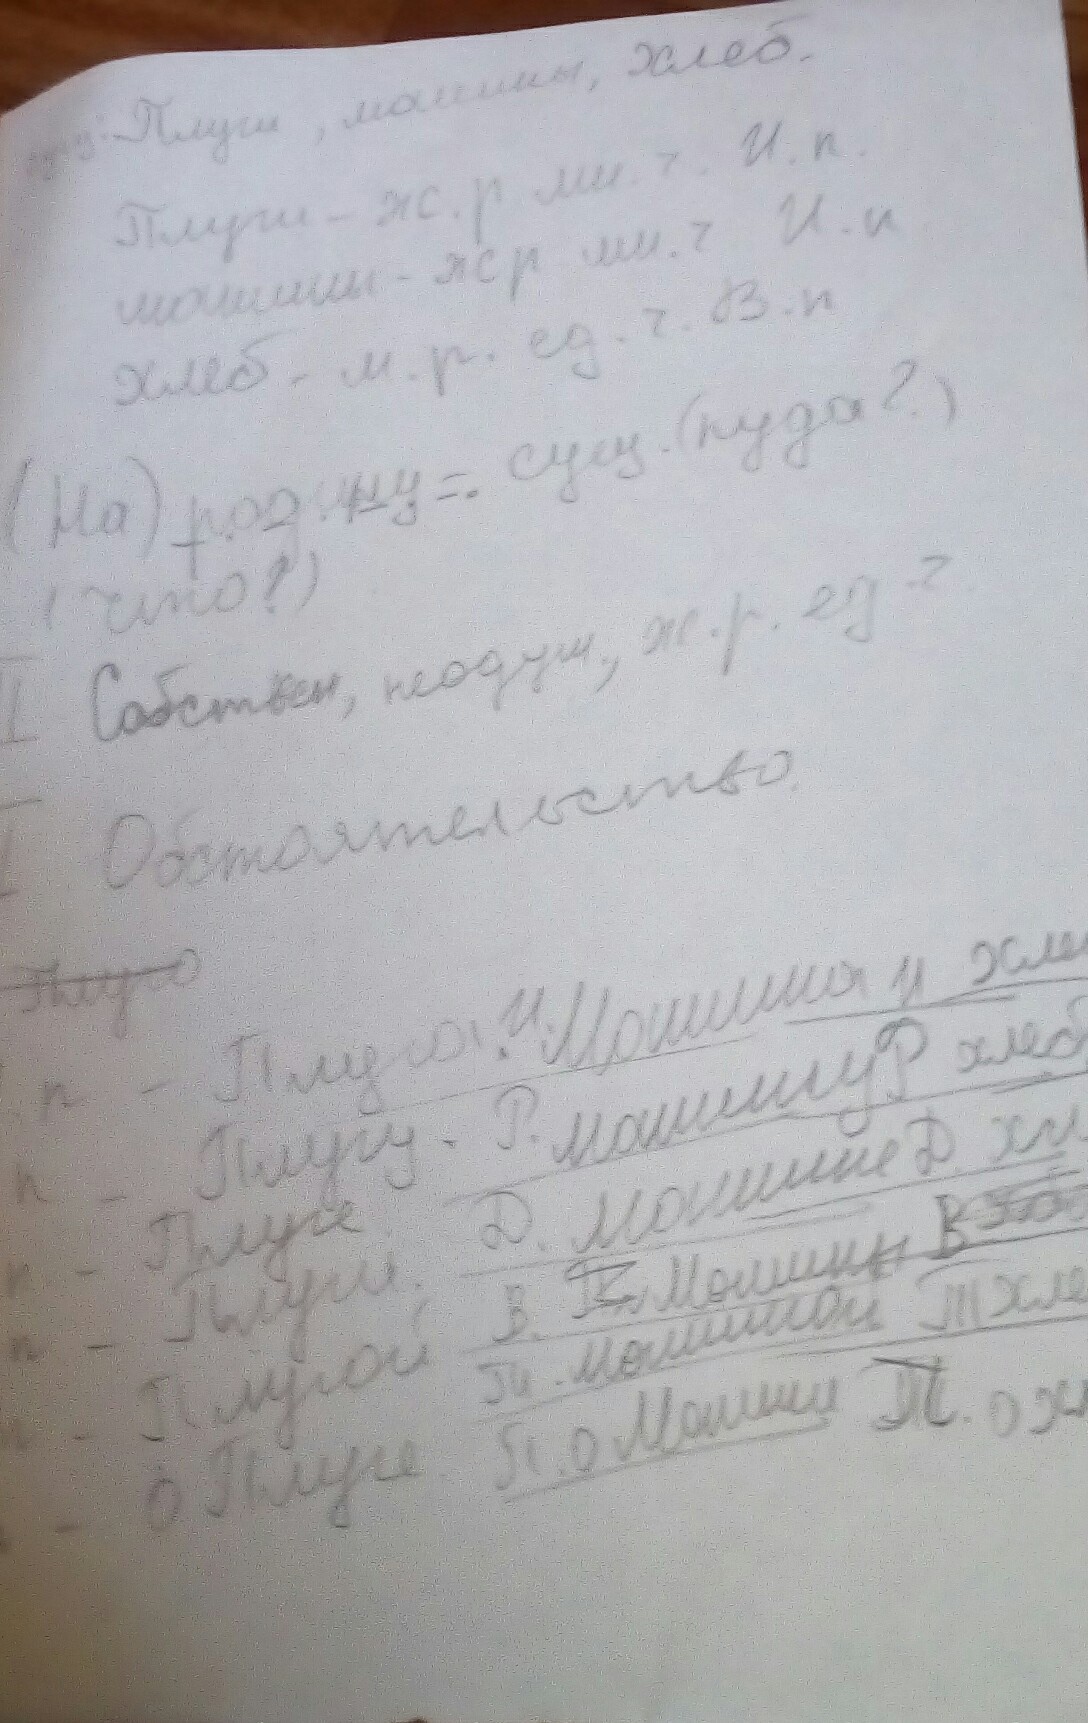 Плуги, машины, хлеб.
Плуги - ж.р мн.ч. И.п.
машины - ж р мн.ч И.п
хлеб - м.р. ед.ч. В.п
(На) родину =. сущ. (куда?)
(что?)
II Собствен, неодуш, ж.р. ед ч.
Обстоятельство.
Плуга
п - Плуга. И. Машина И хле
п - Плугу. Р. машину Р хлеб
п - Плуге Д. машине Д. хл
п - Плуги. В. Машины В
п - Плугой Т. машиной Т хле
- о Плуге П. о Машин П. о х